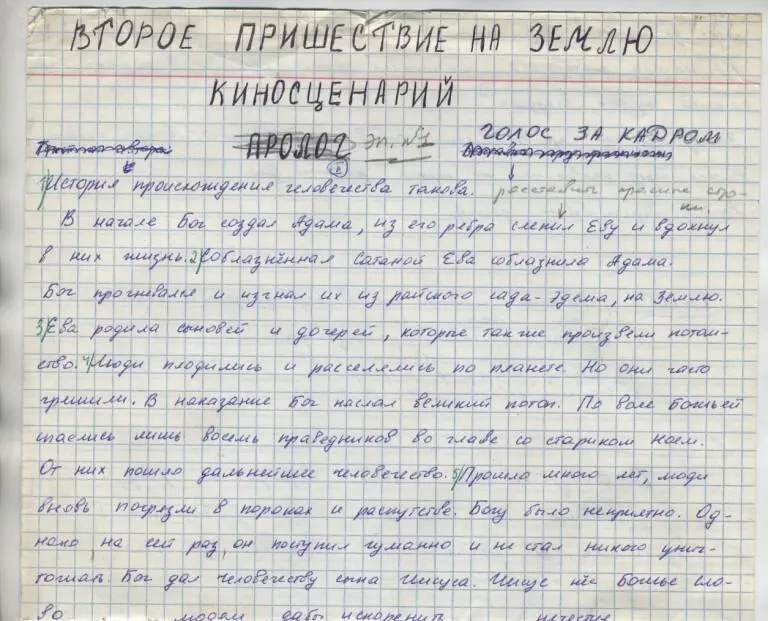 ВТОРОЕ ПРИШЕСТВИЕ НА ЗЕМЛЮ
КИНОСЦЕНАРИЙ
ПРОЛОГ эп. №1 ГОЛОС ЗА КАДРОМ
1) История происхождения человечества такова. расставить красные стро-
ки.
В начале Бог создал Адама, из его ребра слепил Еву и вдохнул
в них жизнь. 2) Соблазнённая Сатаной Ева соблазнила Адама.
Бог прогневался и изгнал их из райского сада-Эдема, на Землю.
3) Ева родила сыновей и дочерей, которые также произвели потом-
ство. 4) Люди плодились и расселялись по планете. Но они часто
грешили. В наказание Бог наслал великий потоп. По воле Божьей
спаслись лишь восемь праведников во главе со стариком Ноем.
От них пошло дальнейшее человечество. 5) Прошло много лет, люди
вновь погрязли в пороках и распутстве. Богу было неприятно. Од-
нако, на сей раз, он поступил гуманно и не стал никого унич-
тожать. Бог дал человечеству сына Иисуса. Иисус нёс Божье сло-
во людям дабы искоренить